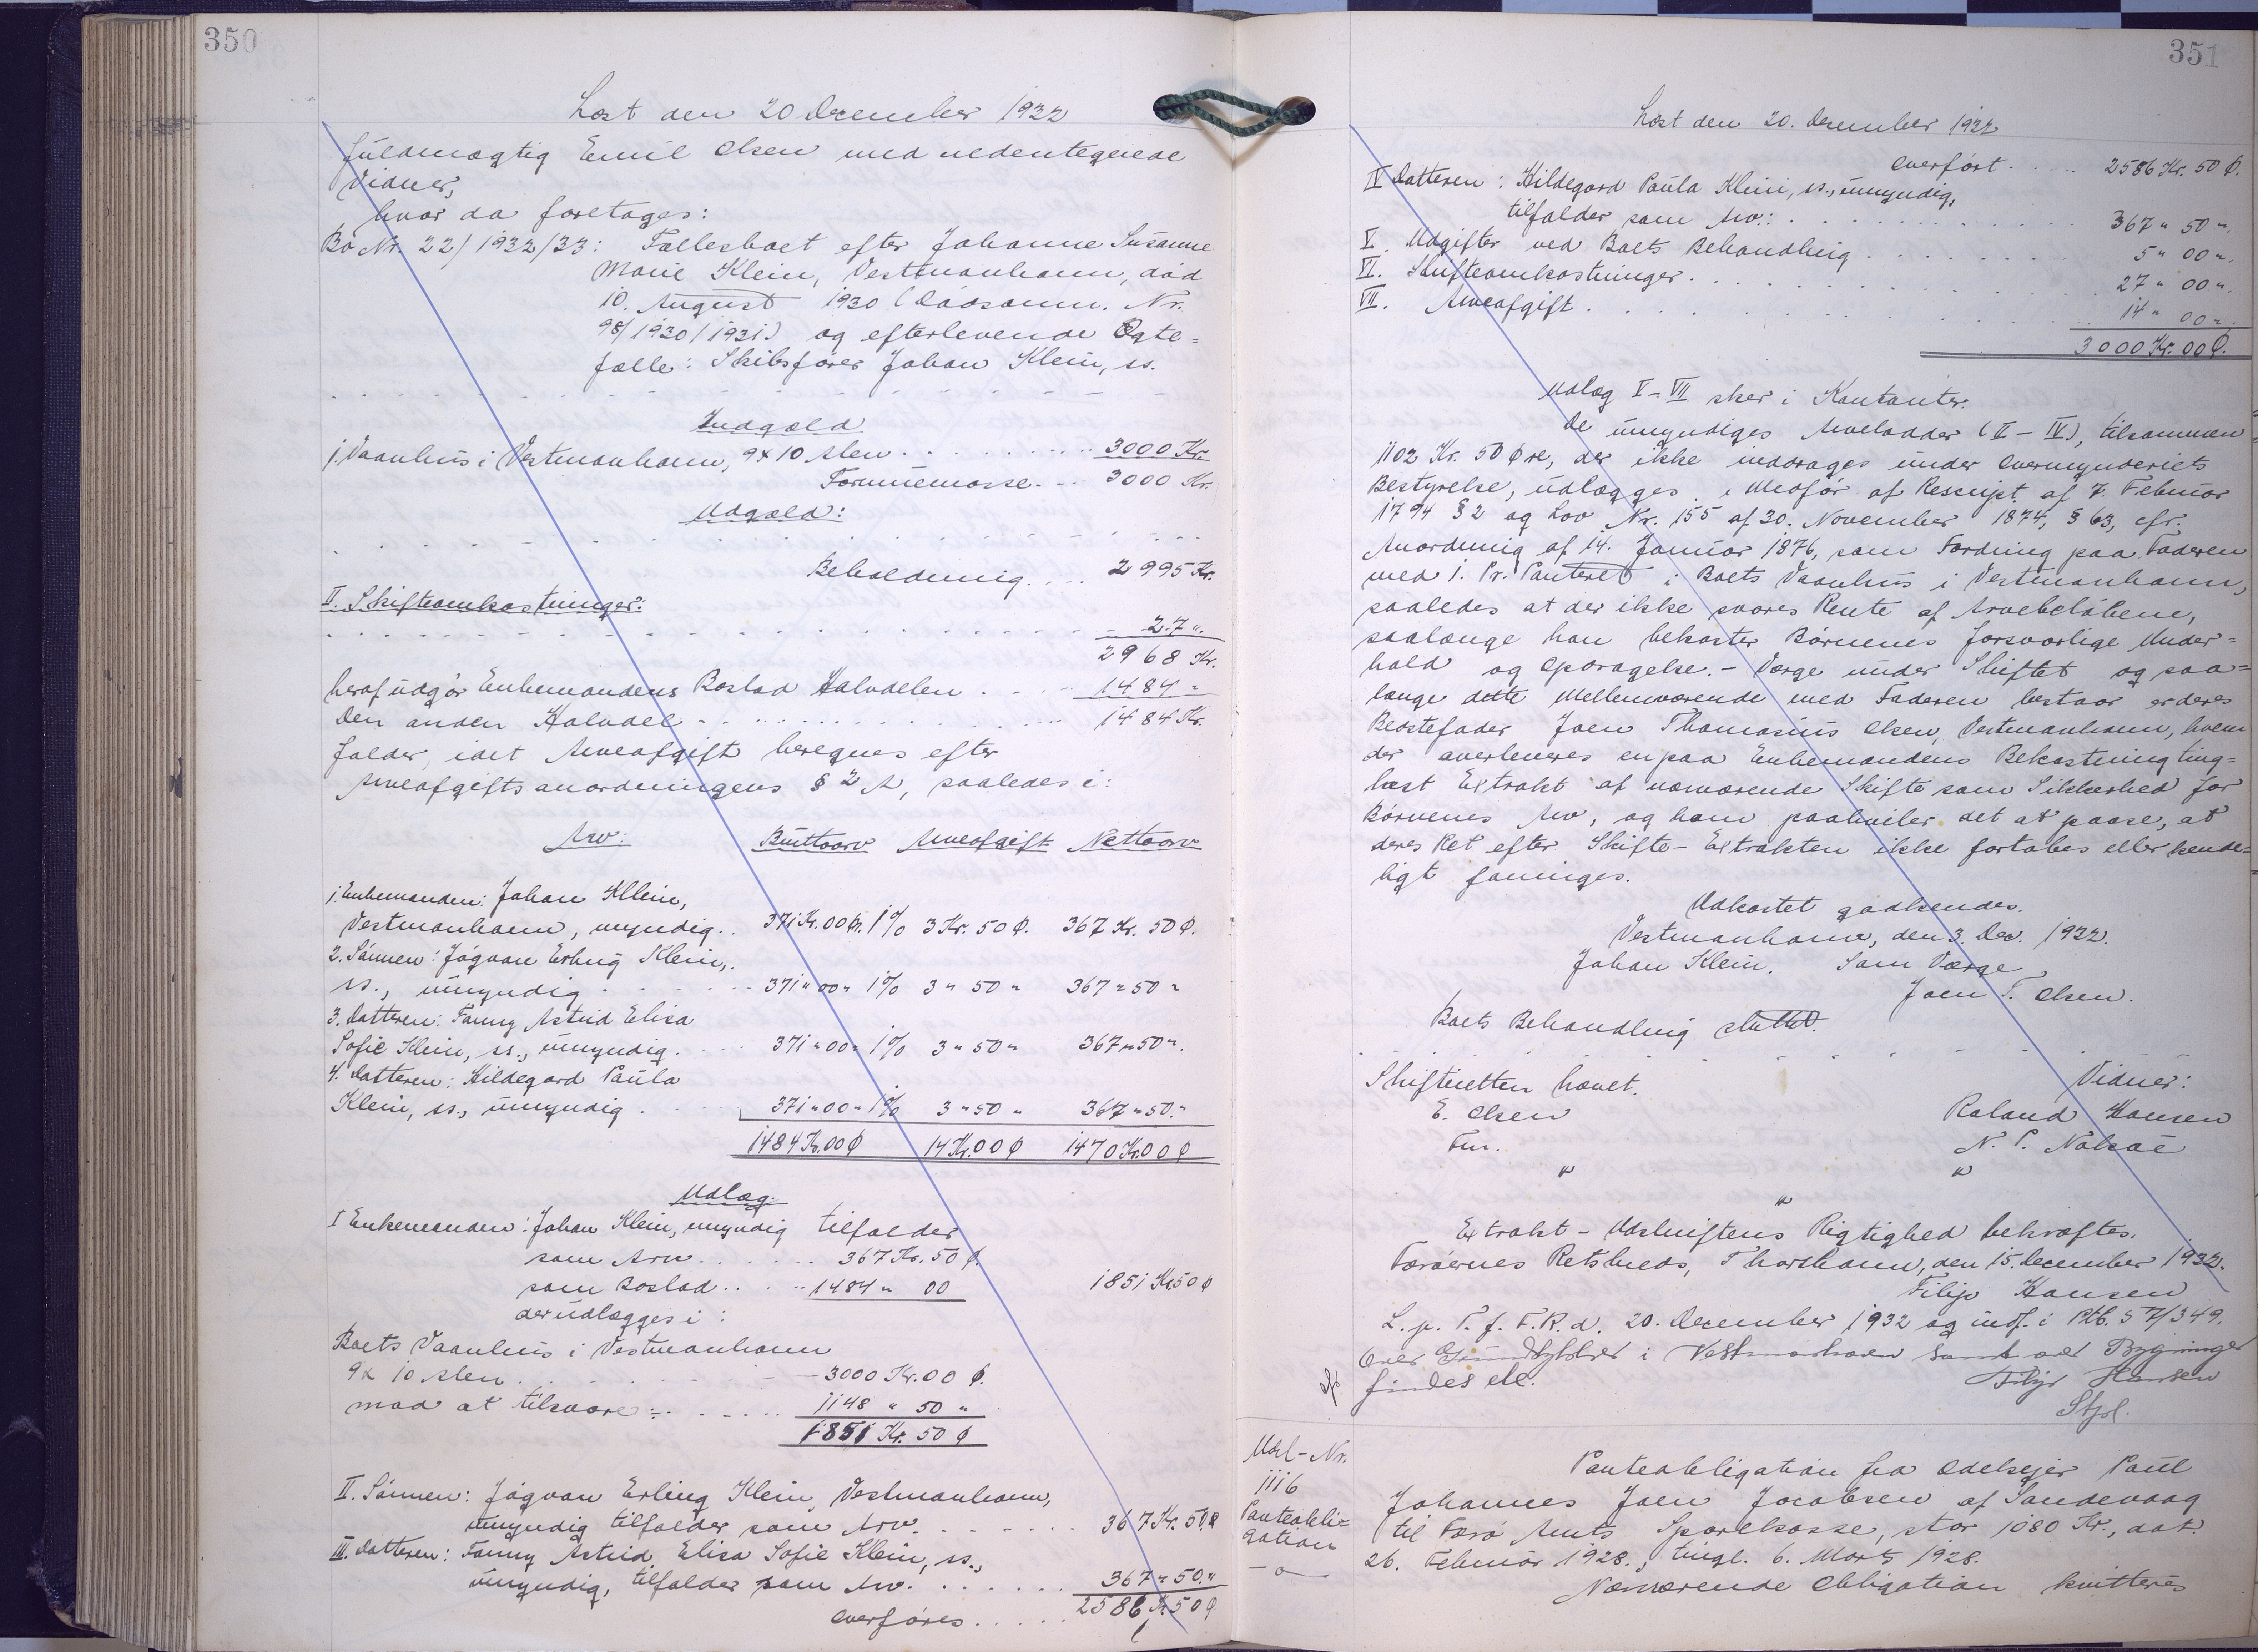 350
Læst den 20 December 1932
fuldmægtig Emil Olsen med undertegnede
Vidner,
hvor da foretages:
Bo Nr. 22/1932/33: Fællesboet efter Johanne Susanne
Marie Klein, Vestmanhavn, død
10. August 1930 (Dødsanm. Nr.
98/1930/1931) og efterlevende Ægte=
fælle: Skibsfører Johan Klein, ss.
Indgæld
1. Vaanhus i Vestmanhavn, 9 x 10 Alen . . . 3000 Kr.
Formuemasse . . 3000 Kr.
Udgæld:
Beholdning . . . 2995 Kr.
II. Skifteomkostninger:
27 "
2968 Kr.
heraf udgør Enkemandens Boslod Halvdelen . . . 1484 "
Den anden Halvdel . . . 1484 Kr.
falder, idet Arveafgift beregnes efter
Arveafgiftsanordningens § 2 A, saaledes i:
Arv: Bruttoarv Arveafgift Nettoarv
1. Enkemanden: Johan Klein,
Vestmanhavn, myndig . . 371 Kr. 00 Ø. 1% 3 Kr. 50 Ø. 367 Kr. 50 Ø.
2. Sønnen: Jógvan Erling Klein,
ss., umyndig . . . 371 " 00 " 1% 3 " 50 " 367 " 50 "
3. Datteren: Fanny Astrid Elisa
Sofie Klein, ss., umyndig . . . 371 " 00 " 1% 3 " 50 " 367 " 50 ".
4. Datteren: Hildegard Paula
Klein, ss., umyndig . . . 371 " 00 " 1% 3 " 50 " 367 " 50 "
1484 Kr. 00 Ø 14 Kr. 00 Ø 1470 Kr. 00 Ø
Udlæg.
I Enkemanden: Johan Klein, myndig tilfalder
som Arv . . . 367 Kr. 50 Ø.
som Boslod . . . 1484 " 00 1851 Kr. 50 Ø
der udlægges i:
Boets Vaanhus i Vestmanhavn
9 x 10 Alen . . . 3000 Kr. 00 Ø.
mod at tilsvare: . . . 1148 " 50 "
1851 Kr. 50 Ø
II. Sønnen: Jógvan Erling Klein, Vestmanhavn,
umyndig tilfalder som Arv . . . 367 Kr. 50 Ø
III. Datteren: Fanny Astrid Elisa Sofie Klein, ss.,
umyndig, tilfalder som Arv. . . . 367 " 50 "
overføres . . . 2586 Kr 50 Ø
351
Læst den 20. December 1932
Overført . . . 2586 Kr. 50 Ø.
IV Datteren: Hildegard Paula Klein, ss., umyndig,
tilfalder som Arv: . . . 367 " 50 ".
V. Udgifter ved Boets Behandling . . . 5 " 00 ".
VI. Skifteomkostninger . . . 27 " 00 ".
VII. Arveafgift . . . 14 " 00 ".
3000 Kr. 00 Ø.
Udlæg V - VII sker i Kontanter.
De umyndiges Arvelodder (II - IV), tilsammen
1102 Kr. 50 Øre, der ikke inddrages under Overmynderiets
Bestyrelse, udlægges i Medfør af Rescript af 7. Februar
1794 § 2 og Lov Nr. 155 af 30. November 1874, § 63, cfr.
Anordning af 14. Januar 1876, som Fordring paa Faderen
med 1. Pr. Panteret i Boets Vaanhus i Vestmanhavn,
saaledes at der ikke svares Rente af Arvebeløbene,
saalænge han bekoster Børnenes forsvarlige Under=
hold og Opdragelse. - Værge under Skiftet og saa=
længe dette Mellemværende med Faderen bestaar er deres
Bedstefader Joen Thomasius Olsen, Vestmanhavn, hvem
der overleveres en paa Enkemandens Bekostning ting=
læst Extrakt af nærværende Skifte som Sikkerhed for
Børnenes Arv, og ham paahviler det at paase, at
deres Ret efter Skifte-Extrakten ikke fortabes eller kende=
ligt forringes.
Udkastet godkendes.
Vestmanhavn, den 3. Dec. 1932.
Johan Klein. Som Værge
Joen T. Olsen.
Boets Behandling sluttet.
Skifteretten hævet.
Vidner:
E. Olsen Roland Hansen
Fm. N. P. Nolsøe
" "
"
Extrakt-Udskriftens Rigtighed bekræftes.
Færøernes Retskreds, Thorshavn, den 15. December 1932.
Filip Hansen
L. p. T. f. F. R. d. 20. December 1932 og indf. i Ptb. S 7/349.
Over Grundstykket i Vestmanhavn samt over Bygninger
findes etc.
Filip Hansen
Stfl.
Udsl-Nr.
1116
Panteobli=
gation
—o—
Panteobligation fra Odelsejer Poul
Johannes Joen Jacobsen af Sandevaag
til Færø Amts Sparekasse, stor 1080 Kr., dat.
26. Februar 1928., tingl. 6. Marts 1928.
Nærværende Obligation kvitteres